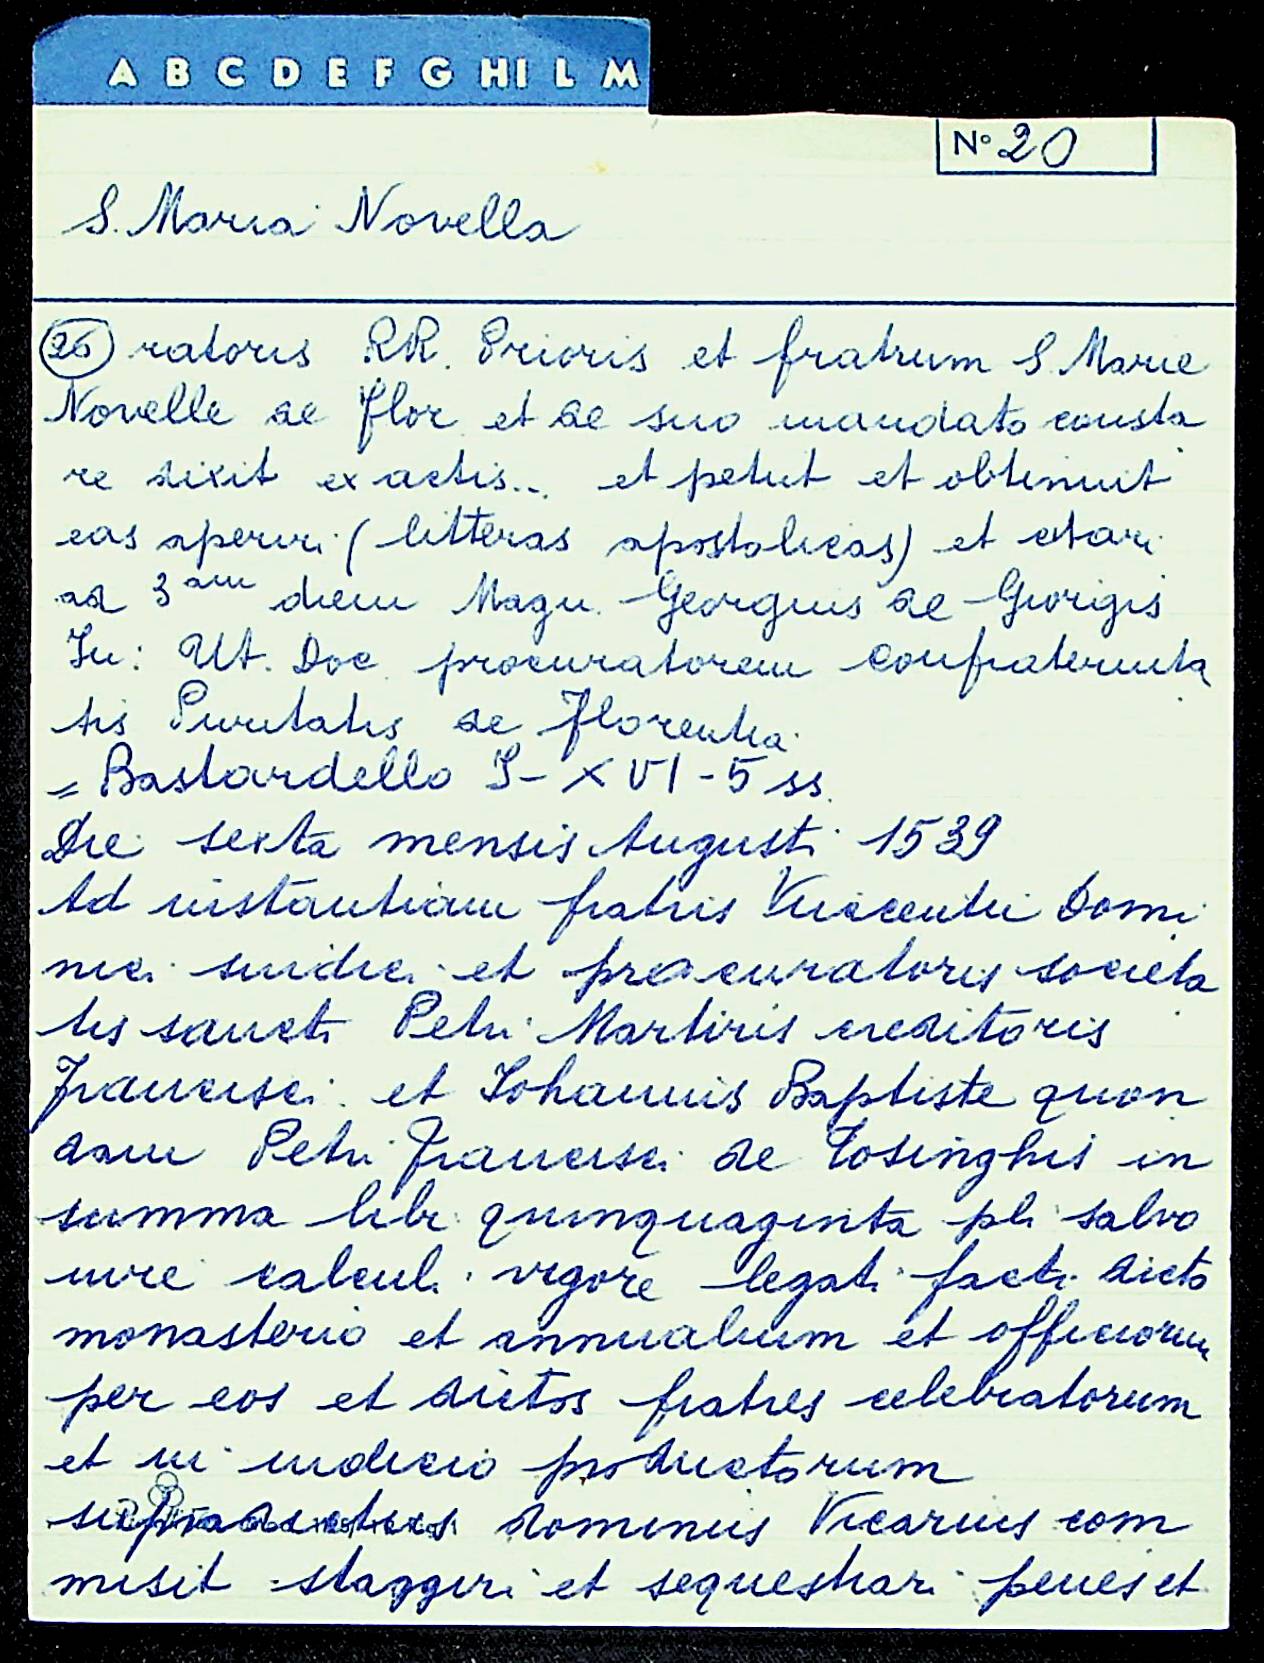 A B C D E F G HI L M
N° 20
S. Maria Novella
26 ratoris RR. Prioris et fratrum S. Marie
Novelle de Flor. et de suo mandato consta
re dixit ex actis... et petiit et obtinuit
eas aperiri (litteras apostolicas) et citari
ad 3am diem Magn. Georgius de Giorigis
Iu: Ut. Doc. procuratorem confraternita
tis Puritatis de Florentia.
= Bastardello I - XVI - 5 ss.
Die sexta mensis Augusti 1539
Ad instantiam fratris Vincentii Domi
nici sindici et procuratoris societa
tis sancti Petri Martiris creditoris
Francisci et Iohannis Baptiste quon
dam Petri Francisci de Tosinghis in
summa libr. quinquaginta pli salvo
iure calculi vigore legati facti dicto
monasterio et annualium et officiorum
per eos et dictos fratres celebratorum
et in iudicio productorum
supradictus dominus Vicarius com
misit staggiri et sequestrari penes et